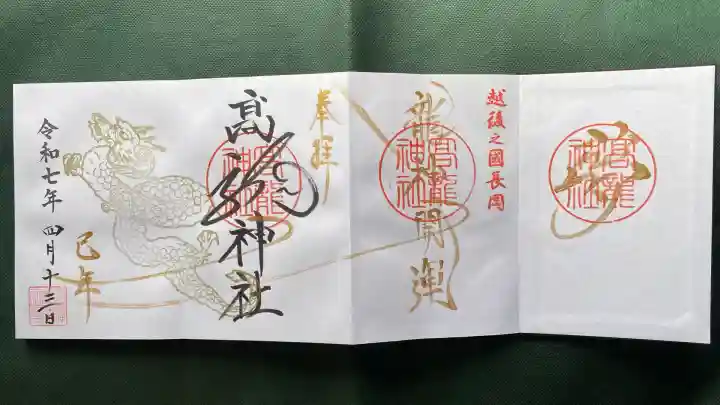 越後之國長岡
高龍神社
高龍神社
龍神開運
奉拝
高龍神社
高龍神社
巳年
令和七年 四月十三日